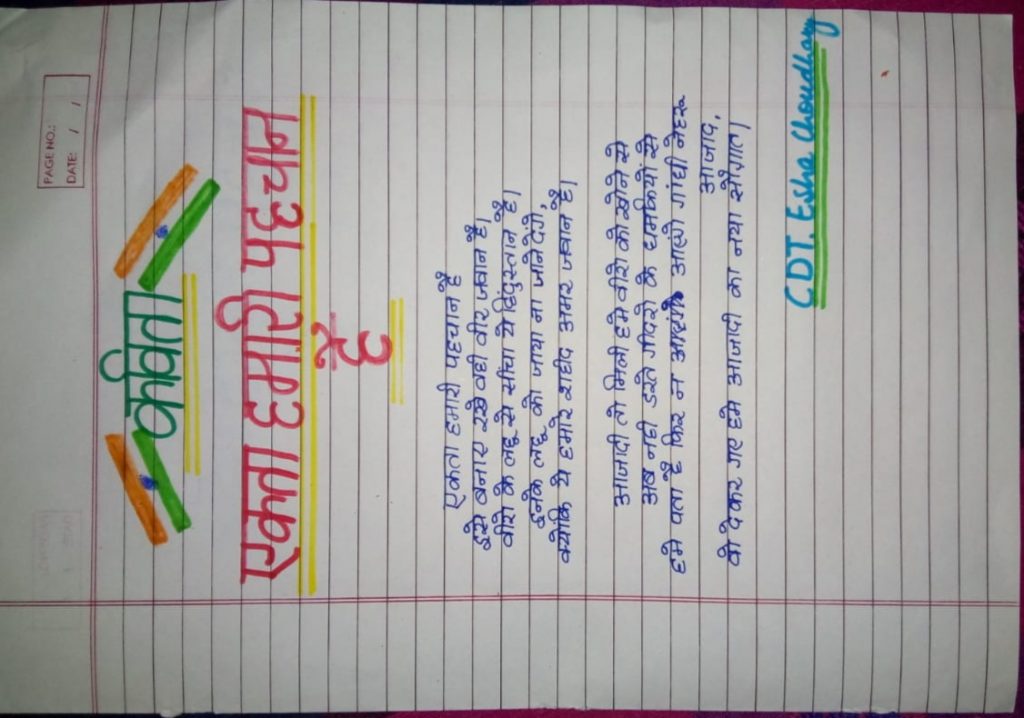 PAGE NO.:
DATE: / /
कविता
एकता हमारी पहचान
है
एकता हमारी पहचान है
इसे बनाए रखे वही वीर जवान है।
वीरो के लहू से सींचा ये हिंदुस्तान है।
इनके लहू को जाया ना जाने देंगे,
क्योकि ये हमारे शहीद अमर जवान है।
आजादी तो मिली हमे वीरो को खोने से
अब नही डरते गीदरो के धमकियों से
हमे पता है फिर न आएंगे गांधी नेहरू
आजाद,
वो देकर गए हमे आजादी का नया सौग़ात।
CDT. Esha Choudhary